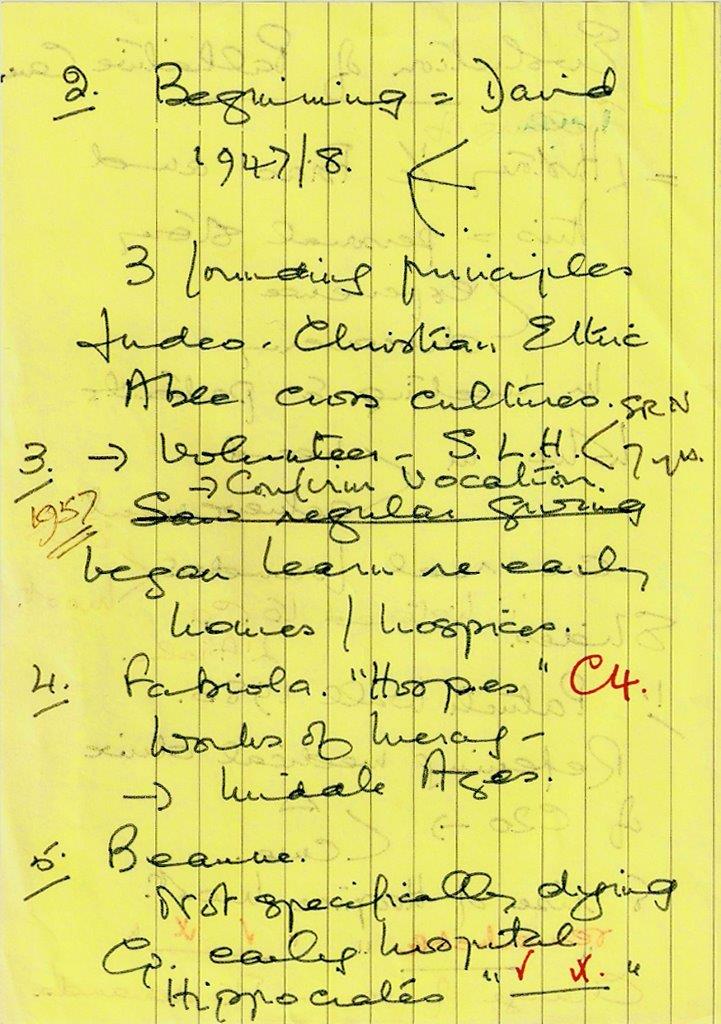 2. Beginning = David
1947/8.
3 founding principles
Judeo-Christian Ethic
Able cross cultures. SRN
3. → Volunteer - S.L.H. < 7 yrs.
→ Confirm vocation.
1957 Saw regular giving
began learn re early
homes / hospices.
4. Fabiola. "Hospes" C4.
Works of mercy -
→ Middle Ages.
5. Beaune.
Not specifically dying
Cp. early hospital
Hippocrates " ✓ x. "